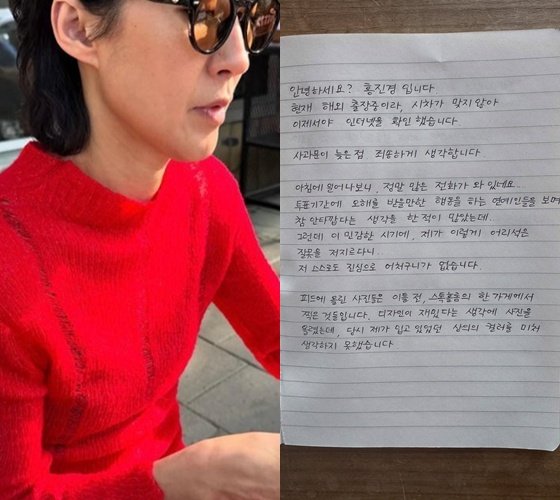 안녕하세요? 홍진경 입니다
현재 해외 출장중이라, 시차가 맞지 않아
이제서야 인터넷을 확인 했습니다.
사과문이 늦은점 죄송하게 생각합니다
아침에 일어나보니, 정말 많은 전화가 와 있네요...
투표기간에 오해를 받을만한 행동을 하는 연예인들을 보며
참 안타깝다는 생각을 한 적이 많았는데..
그런데 이 민감한 시기에, 제가 이렇게 어리석은
잘못을 저지르다니..
저 스스로도 진심으로 어처구니가 없습니다.
피드에 올린 사진들은 이틀 전, 스톡홀름의 한 가게에서
찍은 것들입니다. 디자인이 재밌다는 생각에 사진을
올렸는데, 당시 제가 입고 있었던 상의의 컬러를 미처
생각하지 못했습니다